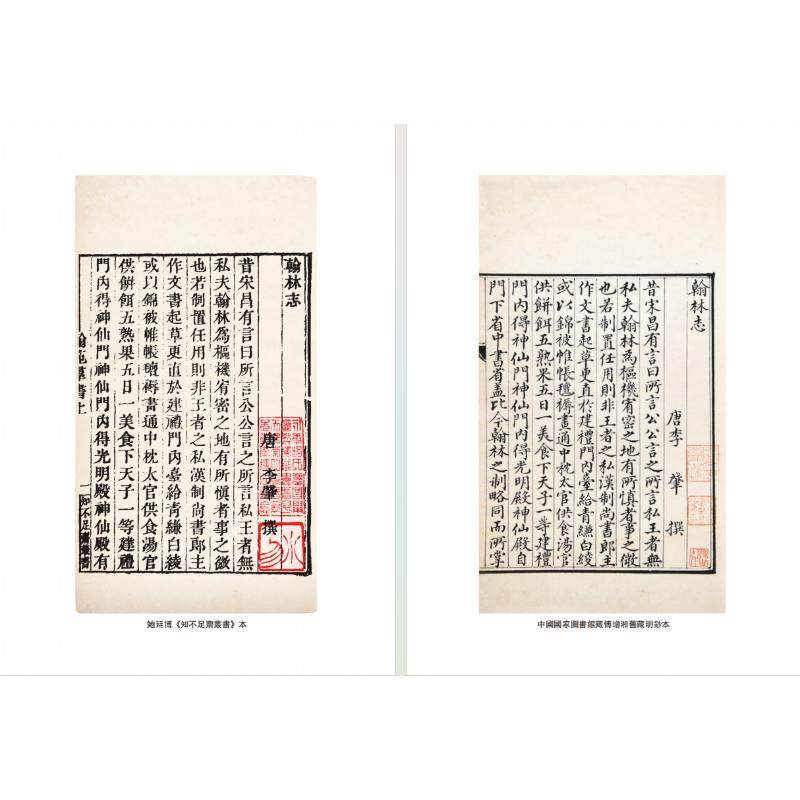 翰林志
唐 李肇 撰
昔宋昌有言曰所言公公言之所言私王者無
私夫翰林爲樞機宥密之地有所愼者事之微
也若制置任用則非王者之私漢制尚書郎主
作文書起草更直於建禮門內臺給青縑白綾
或以錦被帷帳氊褥畫通中枕太官供食湯官
供餠餌五熟果五日一美食下天子一等建禮
門內得神仙門神仙門內得光明殿神仙殿有
翰苑羣書上 一 知不足齋叢書
鮑廷博《知不足齋叢書》本
翰林志
唐李 肇 撰
昔宋昌有言曰所言公公言之所言私王者無
私夫翰林為樞機宥密之地有所慎者事之微
也若制置任用則非王者之私漢制尚書郎主
作文書起草更直於建禮門內臺給青縑白綾
或以錦被帷帳氊褥畫通中枕太官供食湯官
供餅餌五熟果五日一美食下天子一等建禮
門內得神仙門神仙門內得光明殿神仙殿自
門下省中書省盖比今翰林之制略同而所掌
中國國家圖書館藏傅增湘舊藏明鈔本